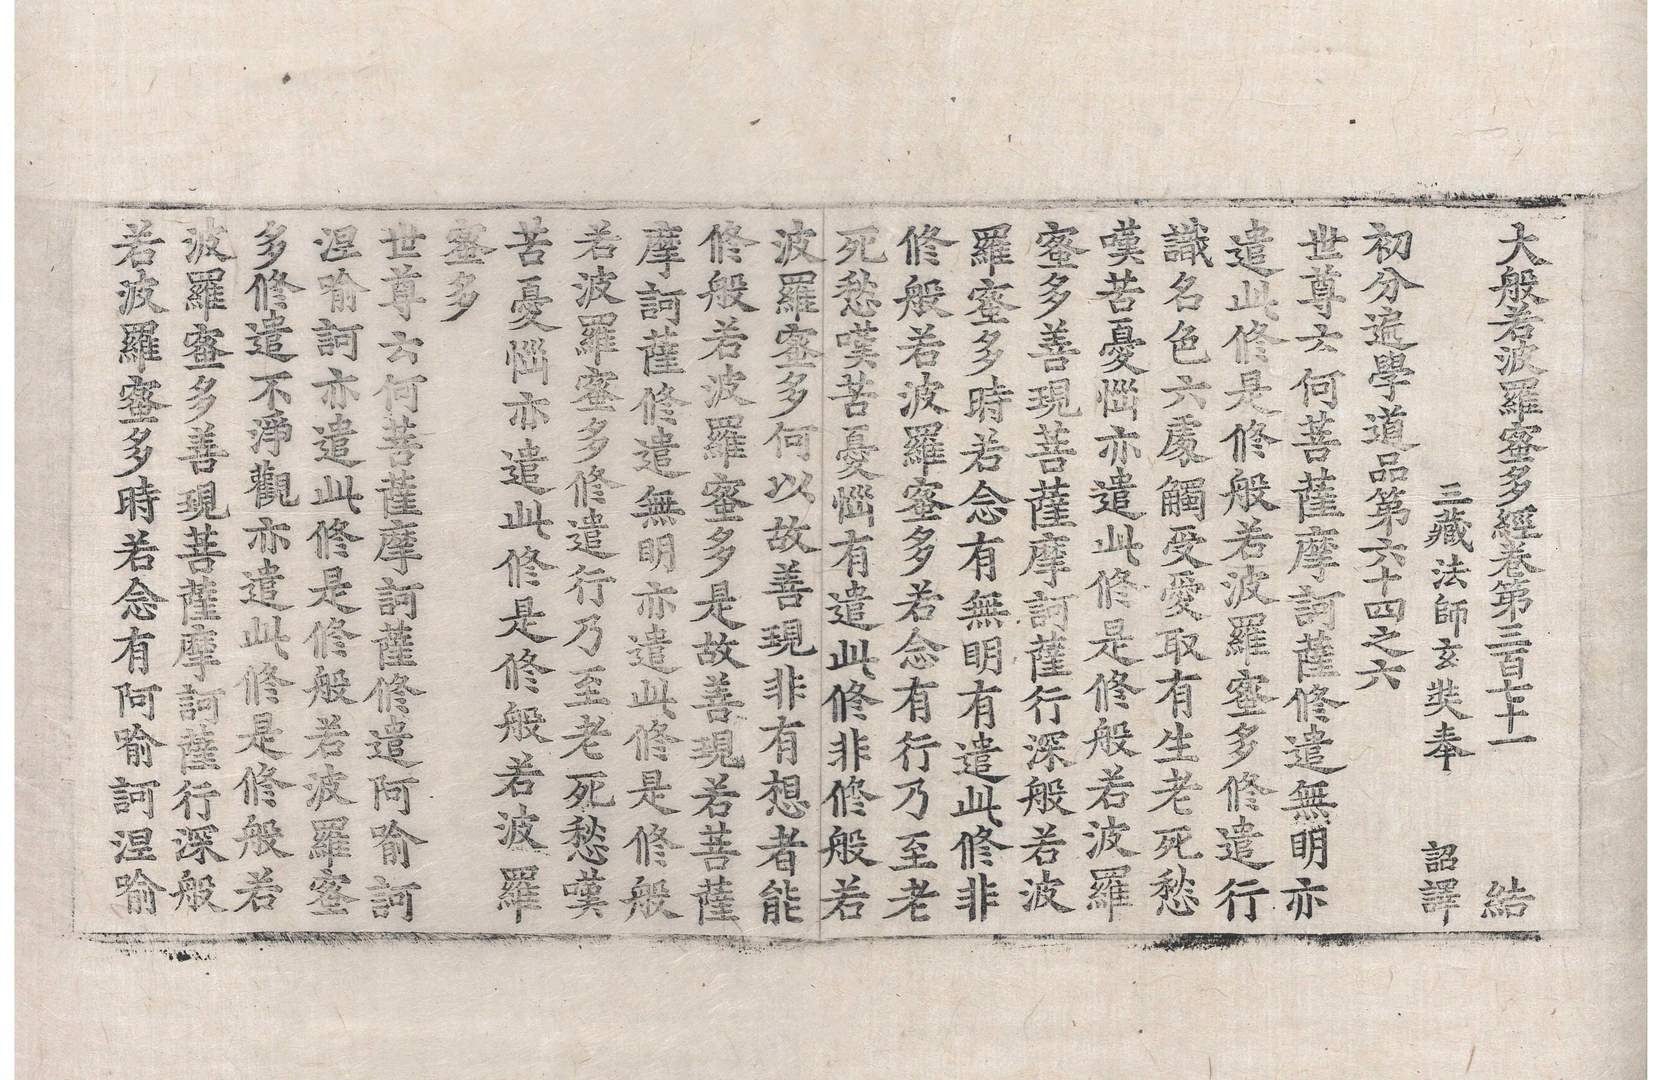 大般若波羅蜜多經卷第三百七十一 結
三藏法師玄奘奉 詔譯
初分遍學道品第六十四之六
世尊云何菩薩摩訶薩修遣無明亦
遣此修是修般若波羅蜜多修遣行
識名色六處觸受愛取有生老死愁
嘆苦憂惱亦遣此修是修般若波羅
蜜多善現菩薩摩訶薩行深般若波
羅蜜多時若念有無明有遣此修非
修般若波羅蜜多若念有行乃至老
死愁嘆苦憂惱有遣此修非修般若
波羅蜜多何以故善現非有想者能
修般若波羅蜜多是故善現若菩薩
摩訶薩修遣無明亦遣此修是修般
若波羅蜜多修遣行乃至老死愁嘆
苦憂惱亦遣此修是修般若波羅
蜜多
世尊云何菩薩摩訶薩修遣阿喻訶
涅喻訶亦遣此修是修般若波羅蜜
多修遣不淨觀亦遣此修是修般若
波羅蜜多善現菩薩摩訶薩行深般
若波羅蜜多時若念有阿喻訶涅喻